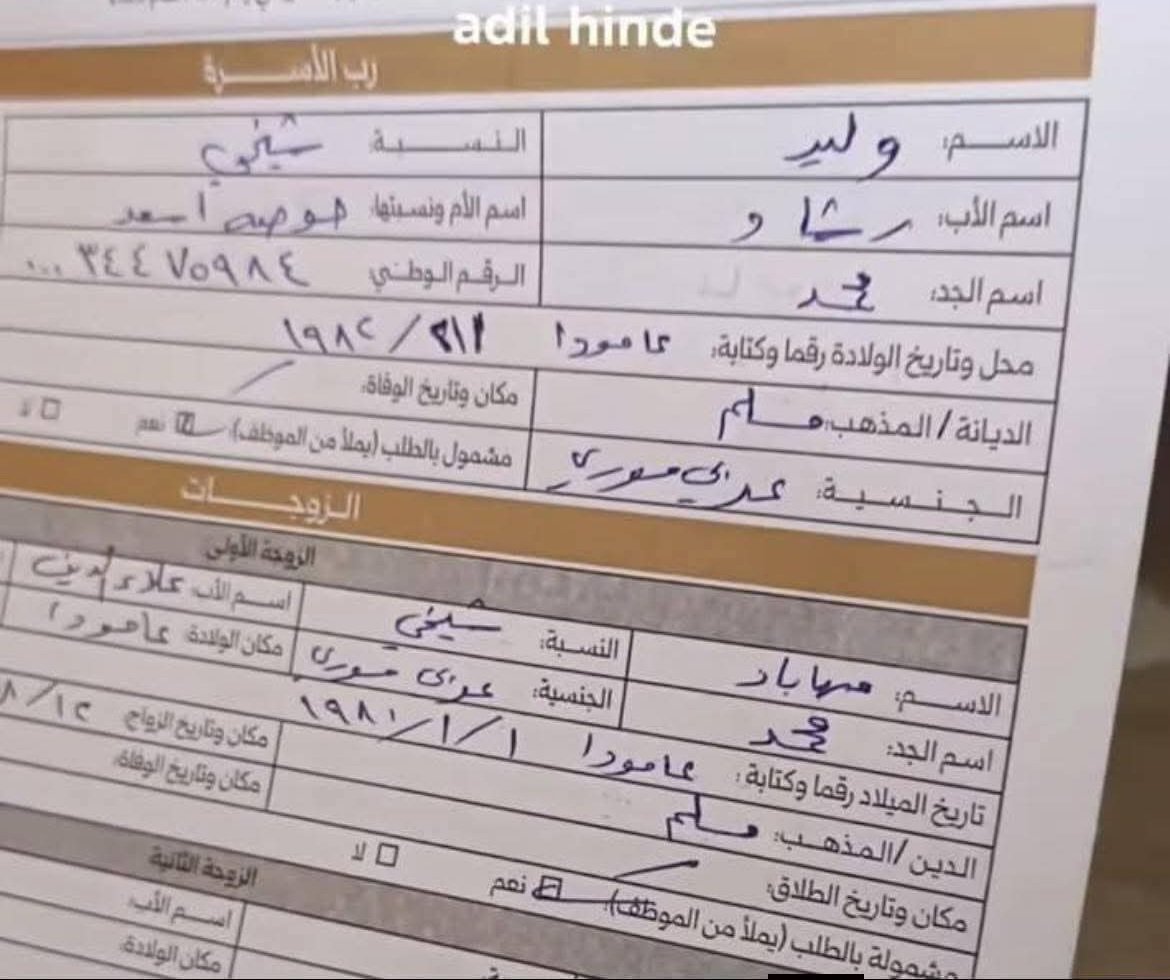 adil hinde
رب الأسرة
الاسم: وليد النسبة شيخي
اسم الأب: رشاد اسم الأم ونسبتها: خوصه أسعد
اسم الجد: محمد الرقم الوطني ٣٤٤٧٥٩٨٤...
محل وتاريخ الولادة رقما وكتابة: عامودا /١٩٨٢
الديانة / المذهب: مسلم مكان وتاريخ الوفاة: /
الجنسية: عربي سوري مشمول بالطلب (يملأ من الموظف): نعم لا
الزوجات
الزوجة الأولى
الاسم: مهاباد النسبة: شيخي اسم الأب: علاء الدين
اسم الجد: محمد الجنسية: عربي سوري مكان الولادة: عامودا
تاريخ الميلاد رقما وكتابة: عامودا ١/١/١٩٨١ مكان وتاريخ الزواج: ٨/١٢
الدين/المذهب: مسلم مكان وتاريخ الوفاة:
مكان وتاريخ الطلاق:
مشمولة بالطلب (يملأ من الموظف): نعم لا
الزوجة الثانية
اسم الأب:
مكان الولادة: